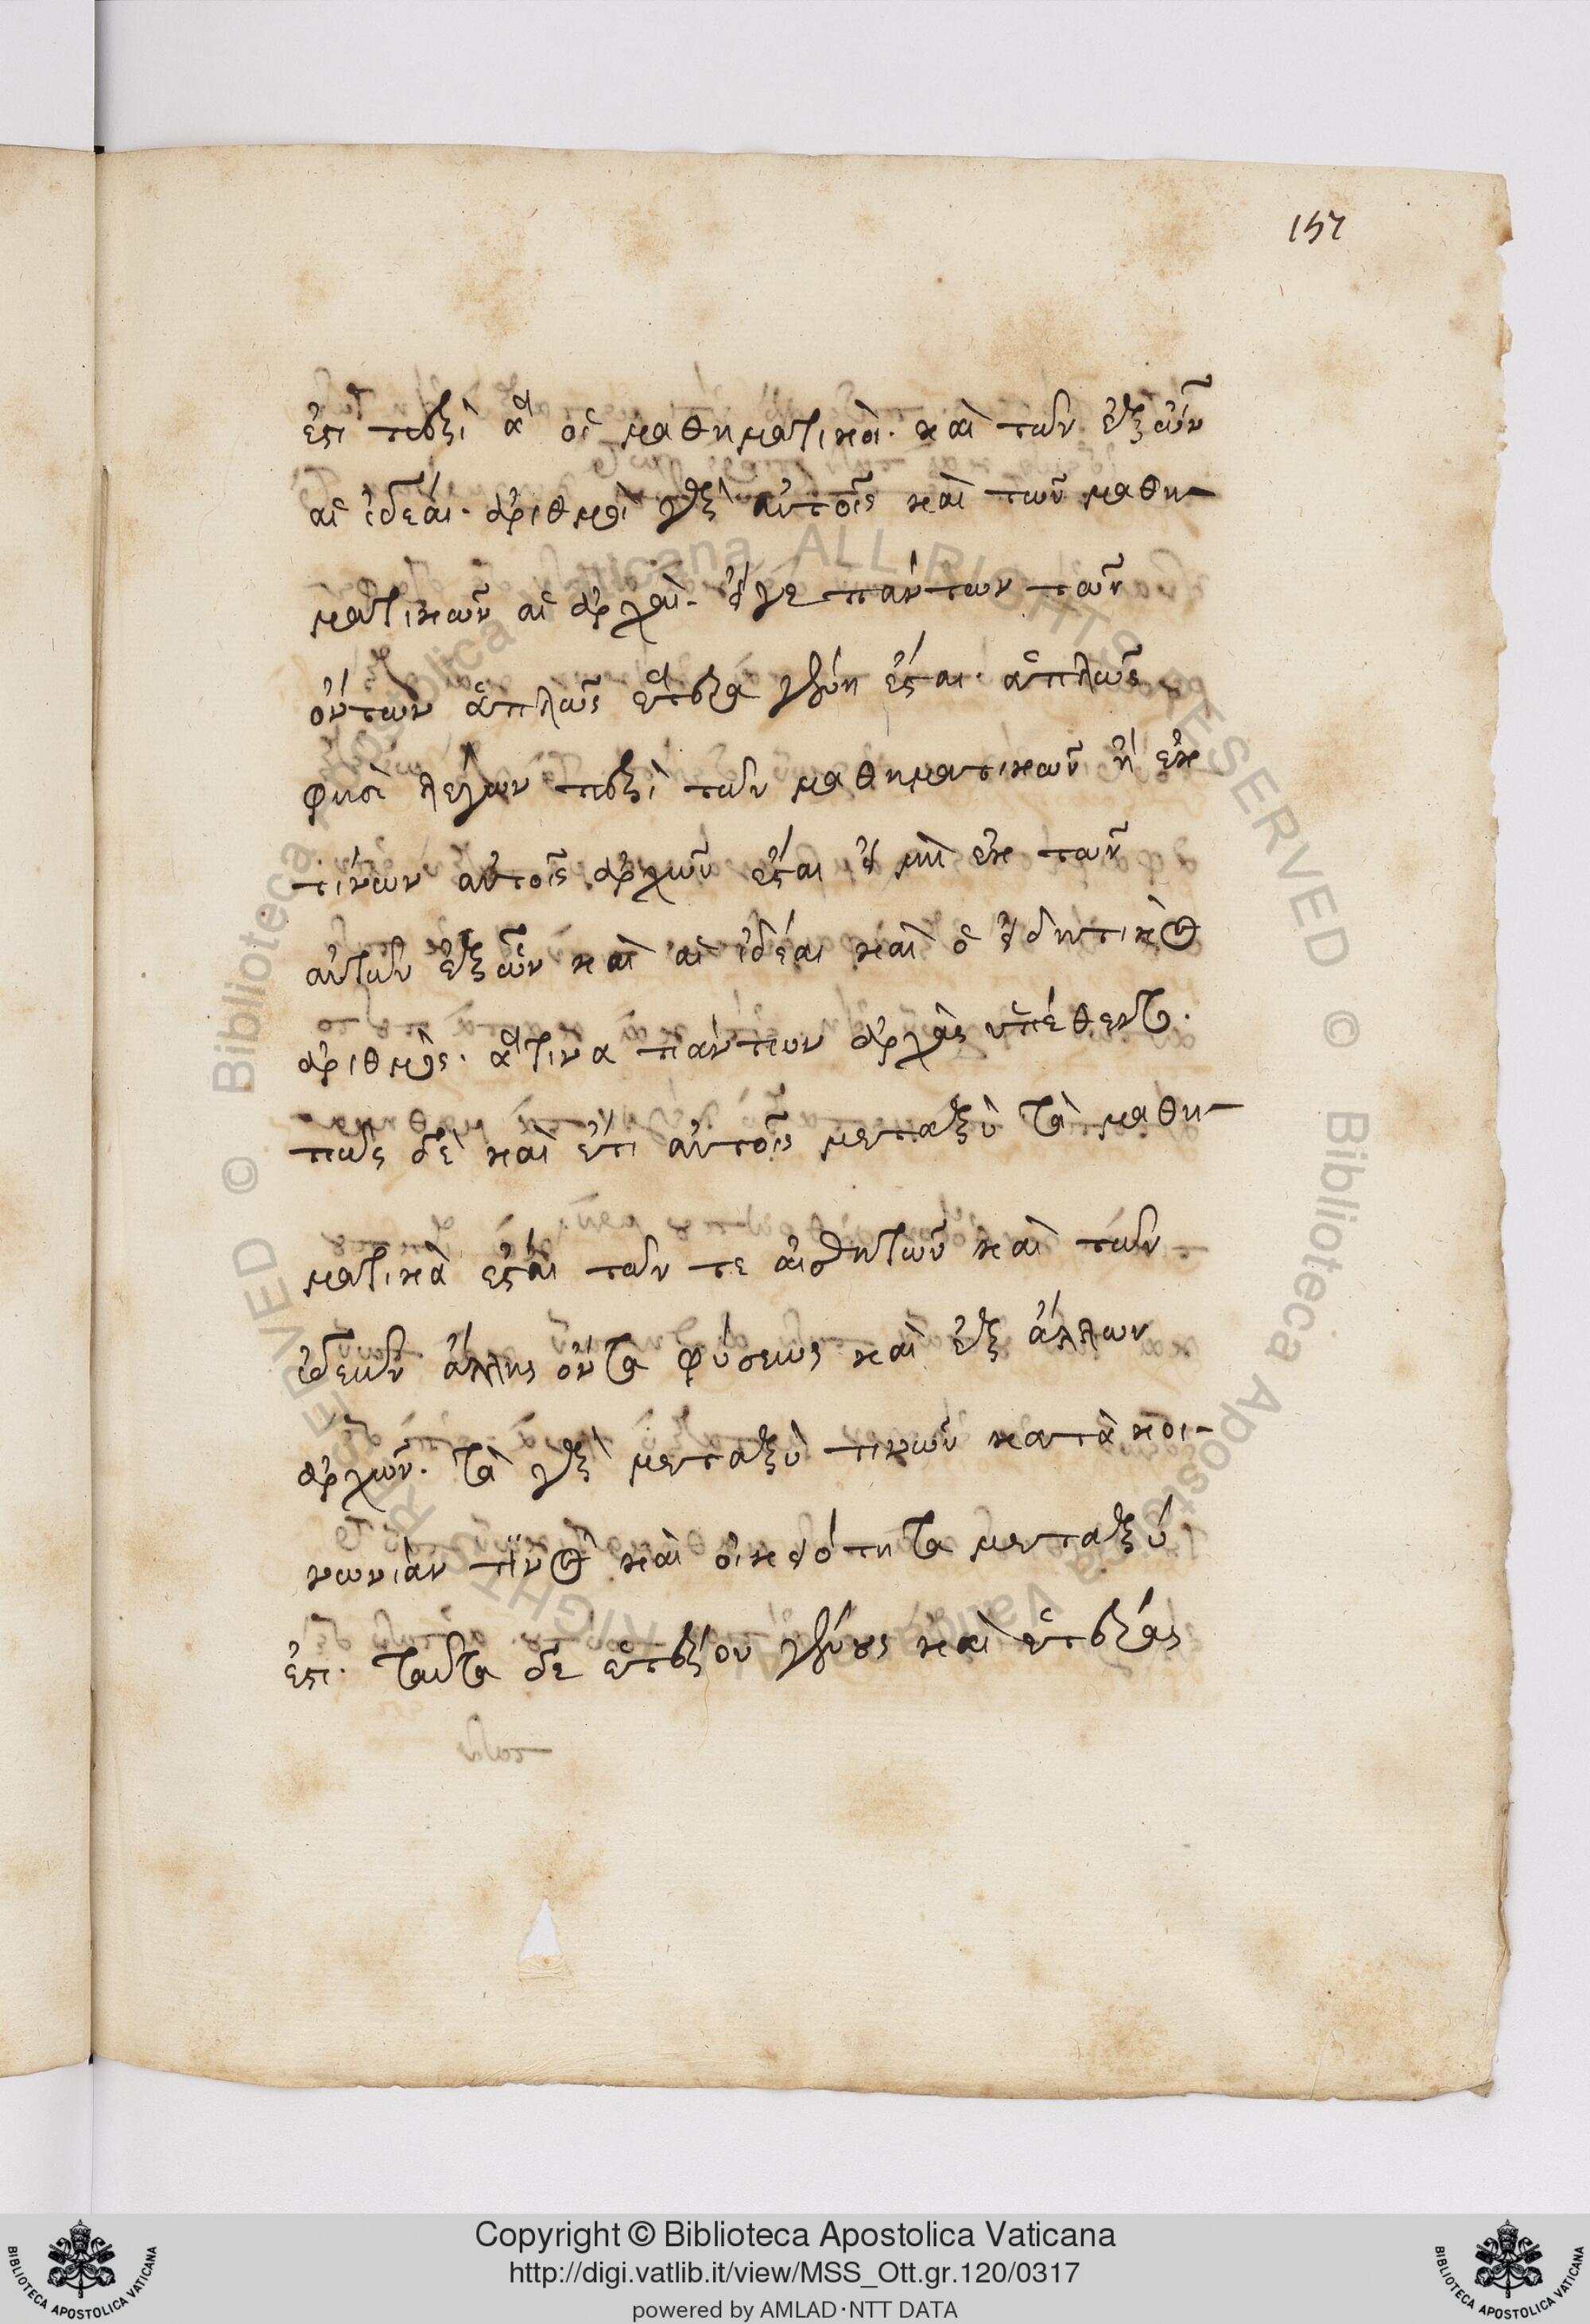 157
ἐστὶ περὶ ἃ οἱ μαθηματικοὶ. καὶ τῶν ἐξ ὧν
αἱ ἰδέαι. ἀριθμοὶ γὰρ αὐτοῖς καὶ τῶν μαθη-
ματικῶν αἱ ἀρχαὶ. εἴγε πάντων τῶν
ὄντων ἁπλῶς ἕτερα γένη ἔσται. ἁπλῶς
φησὶ λέγων περὶ τῶν μαθηματικῶν ἢ ἐκ
τίνων αὐτοῖς ἀρχῶν ἔσται εἰ μὴ ἐκ τῶν
αὐτῶν ἐξ ὧν καὶ αἱ ἰδέαι καὶ ὁ εἰδητικὸς
ἀριθμὸς. ἅτινα πάντων ἀρχὰς ὑπέθεντο.
πῶς δὲ καὶ ἔτι αὐτοῖς μεταξὺ τὰ μαθη-
ματικὰ ἔσται τῶν τε αἰσθητῶν καὶ τῶν
ἰδεῶν ἄλλης ὄντα φύσεως καὶ ἐξ ἄλλων
ἀρχῶν. τὰ γὰρ μεταξὺ τινῶν κατὰ κοι-
νωνίαν τινὸς καὶ οἰκειότητα μεταξύ
ἐστι. ταῦτα δὲ ἑτέρου γένους καὶ ἑτέρας
τῶν
Copyright © Biblioteca Apostolica Vaticana
http://digi.vatlib.it/view/MSS_Ott.gr.120/0317
powered by AMLAD·NTT DATA
BIBLIOTECA APOSTOLICA VATICANA
BIBLIOTECA APOSTOLICA VATICANA
© Biblioteca Apostolica Vaticana ALL RIGHTS RESERVED © Biblioteca Apostolica Vaticana ALL RIGHTS RESERVED